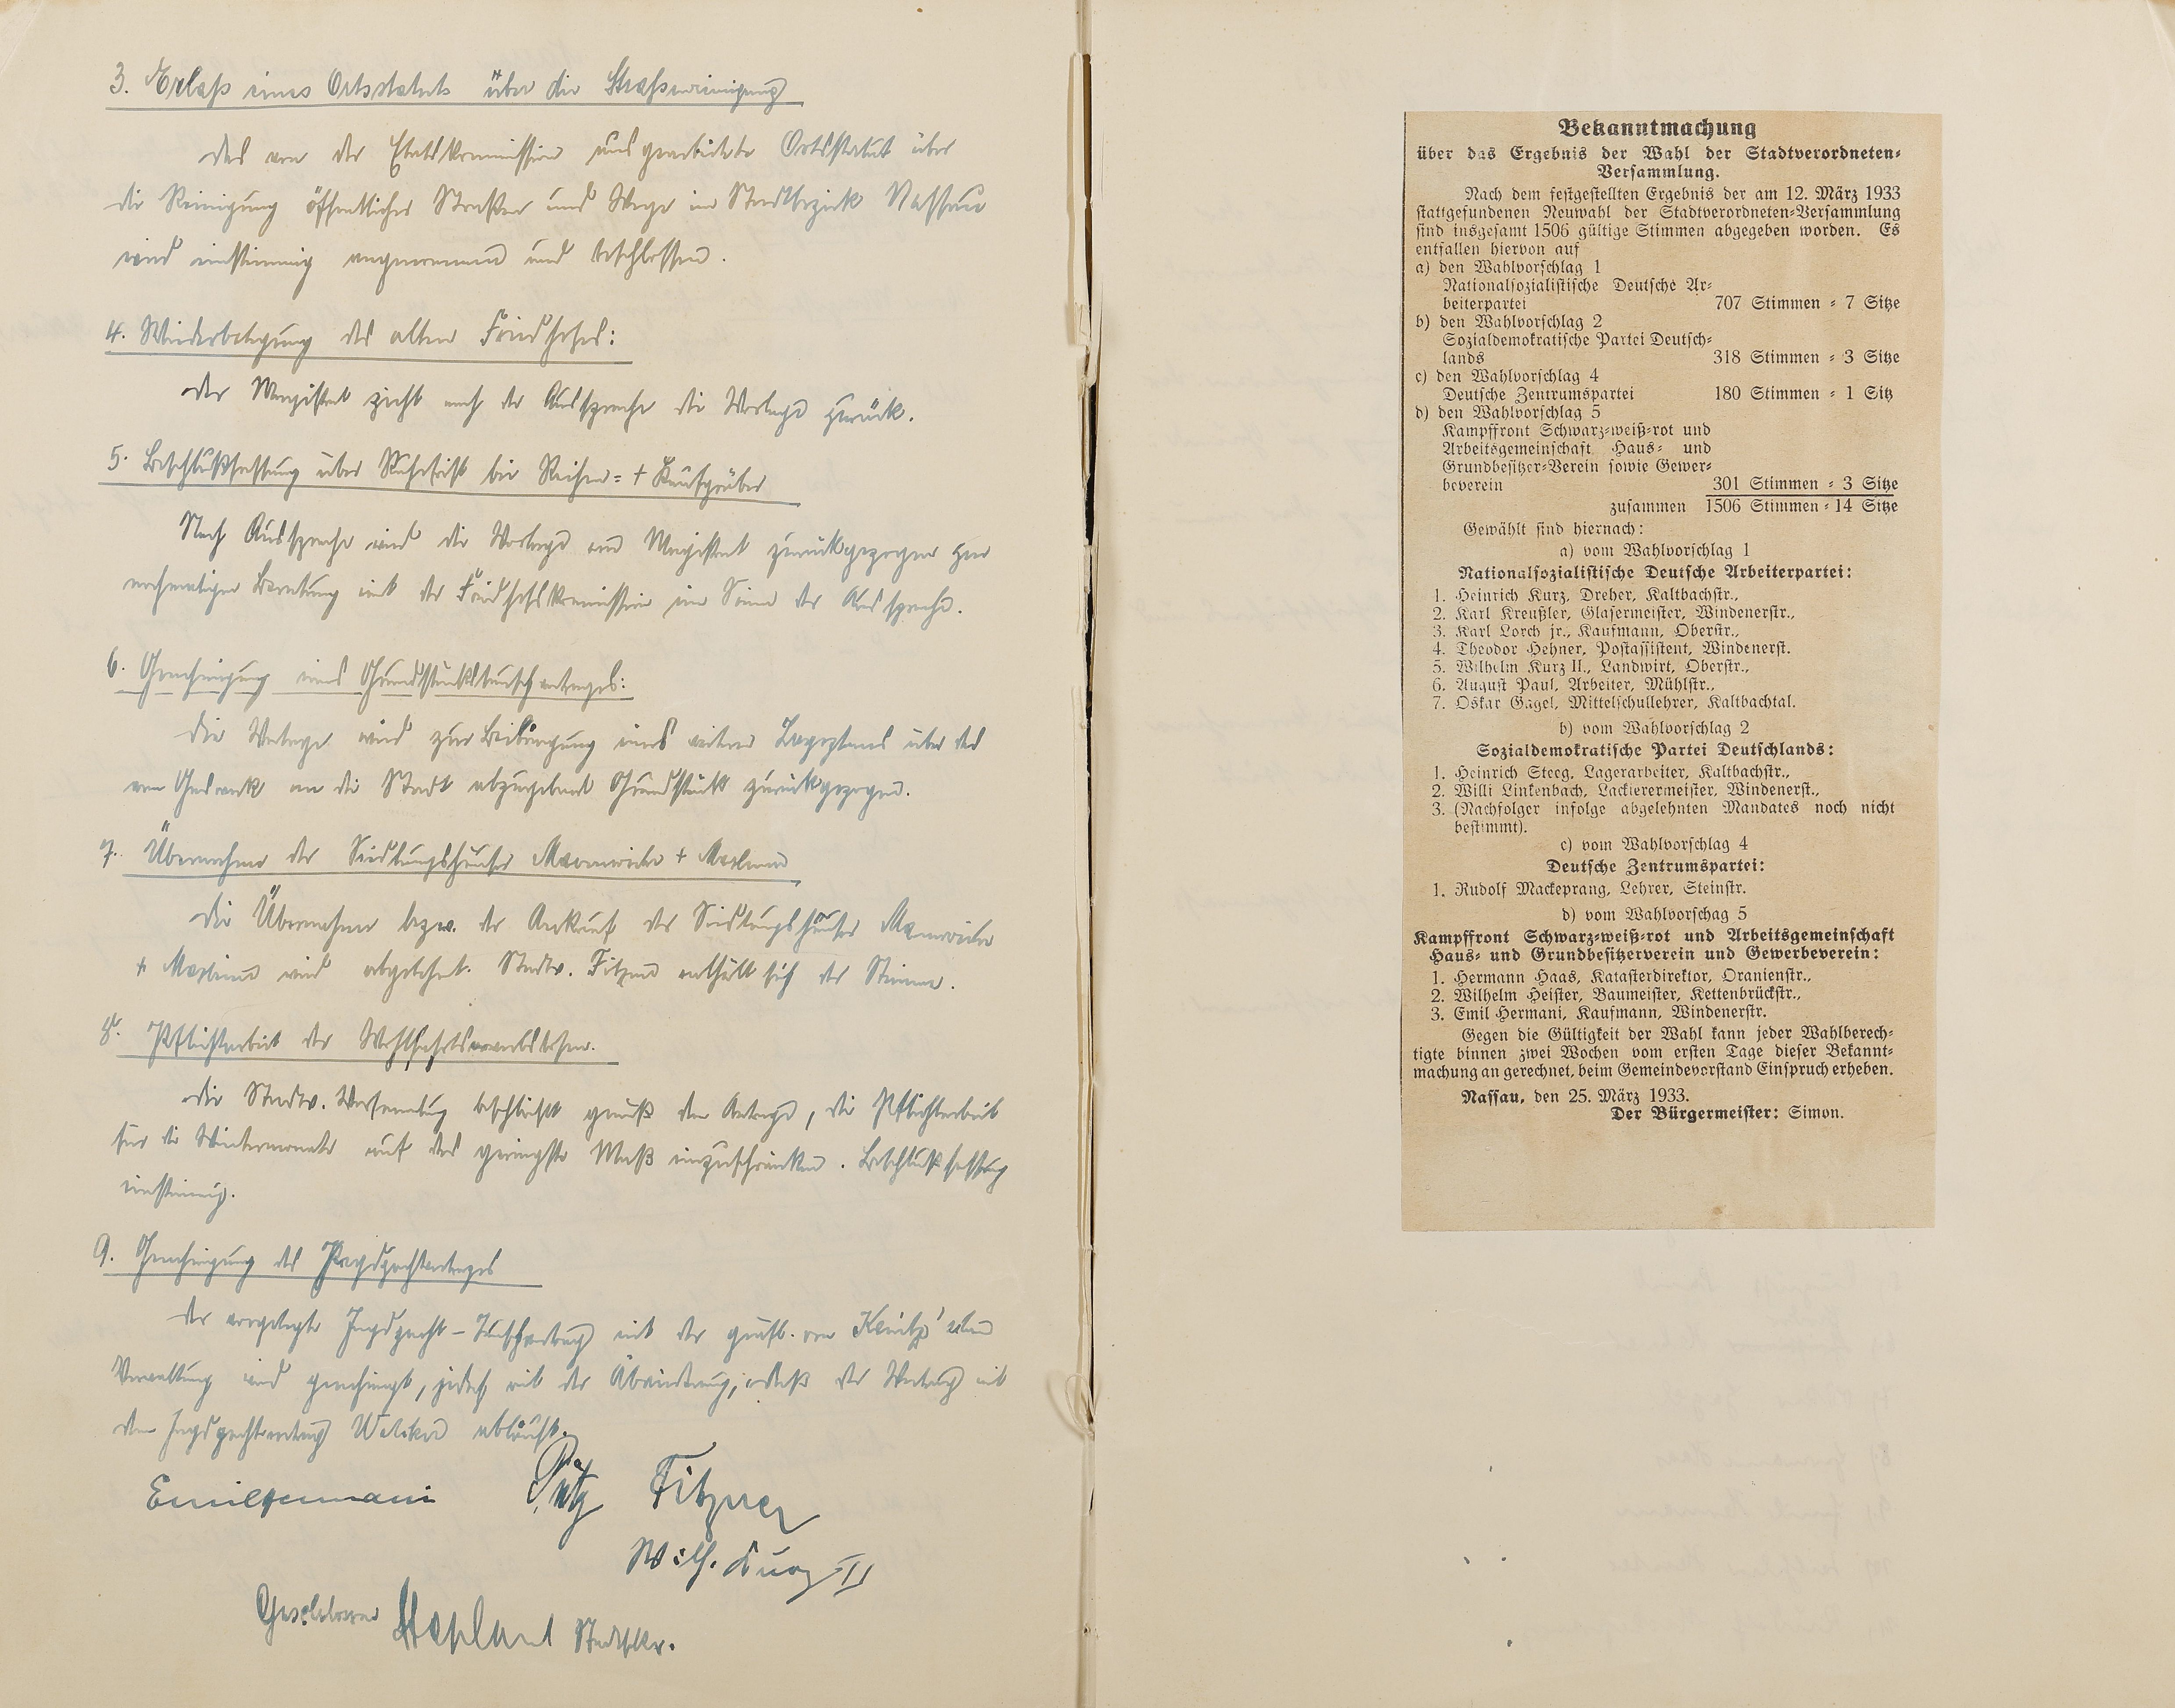 3. Erlaß eines Ortsstatuts über die Straßenreinigung
Das von der Etatskommission ausgearbeitete Ortsstatut über
die Reinigung öffentlicher Straßen und Wege im Stadtbezirk Nassau
wird einstimmig angenommen und beschlossen.
4. Wiederbelegung des alten Friedhofes:
Der Magistrat zieht nach der Aussprache die Vorlage zurück.
5. Beschlußfassung über Ruhefrist bei Reihen= + Kaufgräber
Nach Aussprache wird die Vorlage vom Magistrat zurückgezogen zur
nochmaligen Beratung mit der Friedhofskommission im Sinne der Aussprache.
6. Genehmigung eines Grundstückstauschvertrages:
Die Vorlage wird zur Beibringung eines weiteren Lageplanes über das
vom Gaswerk an die Stadt abzugebende Grundstück zurückgezogen.
7. Übernahme der Siedlungshäuser +
Die Übernahme bzw. der Ankauf der Siedlungshäuser
+ wird abgelehnt. Stadtv. Fitzner enthält sich der Stimme.
8. Pflichtarbeit der Wohlfahrtserwerbslosen.
Die Stadtv. Versammlung beschließt gemäß dem Antrage, die Pflichtarbeit
für die Wintermonate auf das geringste Maß einzuschränken. Beschlußfassung
einstimmig.
9. Genehmigung des Jagdpachtvertrages
Der vorgelegte Jagdpacht-Tauschvertrag mit der gräfl. von
Verwaltung wird genehmigt, jedoch mit der Abänderung, daß der Vertrag mit
dem Jagdpachtvertrag abläuft.
Emil Hermani Fitzner
Wilh. Kurz II
Geschlossen Stadtsekr.
Bekanntmachung
über das Ergebnis der Wahl der Stadtverordneten-
Versammlung.
Nach dem festgestellten Ergebnis der am 12. März 1933
stattgefundenen Neuwahl der Stadtverordneten-Versammlung
sind insgesamt 1506 gültige Stimmen abgegeben worden. Es
entfallen hiervon auf
a) den Wahlvorschlag 1
Nationalsozialistische Deutsche Ar-
beiterpartei 707 Stimmen = 7 Sitze
b) den Wahlvorschlag 2
Sozialdemokratische Partei Deutsch-
lands 318 Stimmen = 3 Sitze
c) den Wahlvorschlag 4
Deutsche Zentrumspartei 180 Stimmen = 1 Sitz
d) den Wahlvorschlag 5
Kampffront Schwarz-weiß-rot und
Arbeitsgemeinschaft Haus- und
Grundbesitzer-Verein sowie Gewer-
beverein 301 Stimmen = 3 Sitze
zusammen 1506 Stimmen = 14 Sitze
Gewählt sind hiernach:
a) vom Wahlvorschlag 1
Nationalsozialistische Deutsche Arbeiterpartei:
1. Heinrich Kurz, Dreher, Kaltbachstr.,
2. Karl Kreußler, Glasermeister, Windenerstr.,
3. Karl Lorch jr., Kaufmann, Oberstr.,
4. Theodor Hehner, Postassistent, Windenerst.
5. Wilhelm Kurz II., Landwirt, Oberstr.,
6. August Paul, Arbeiter, Mühlstr.,
7. Oskar Gagel, Mittelschullehrer, Kaltbachtal.
b) vom Wahlvorschlag 2
Sozialdemokratische Partei Deutschlands:
1. Heinrich Steeg, Lagerarbeiter, Kaltbachstr.,
2. Willi Linkenbach, Lackierermeister, Windenerst.,
3. (Nachfolger infolge abgelehnten Mandates noch nicht
bestimmt).
c) vom Wahlvorschlag 4
Deutsche Zentrumspartei:
1. Rudolf Mackeprang, Lehrer, Steinstr.
d) vom Wahlvorschag 5
Kampffront Schwarz-weiß-rot und Arbeitsgemeinschaft
Haus- und Grundbesitzerverein und Gewerbeverein:
1. Hermann Haas, Katasterdirektor, Oranienstr.,
2. Wilhelm Heister, Baumeister, Kettenbrückstr.,
3. Emil Hermani, Kaufmann, Windenerstr.
Gegen die Gültigkeit der Wahl kann jeder Wahlberech-
tigte binnen zwei Wochen vom ersten Tage dieser Bekannt-
machung an gerechnet, beim Gemeindevorstand Einspruch erheben.
Nassau, den 25. März 1933.
Der Bürgermeister: Simon.